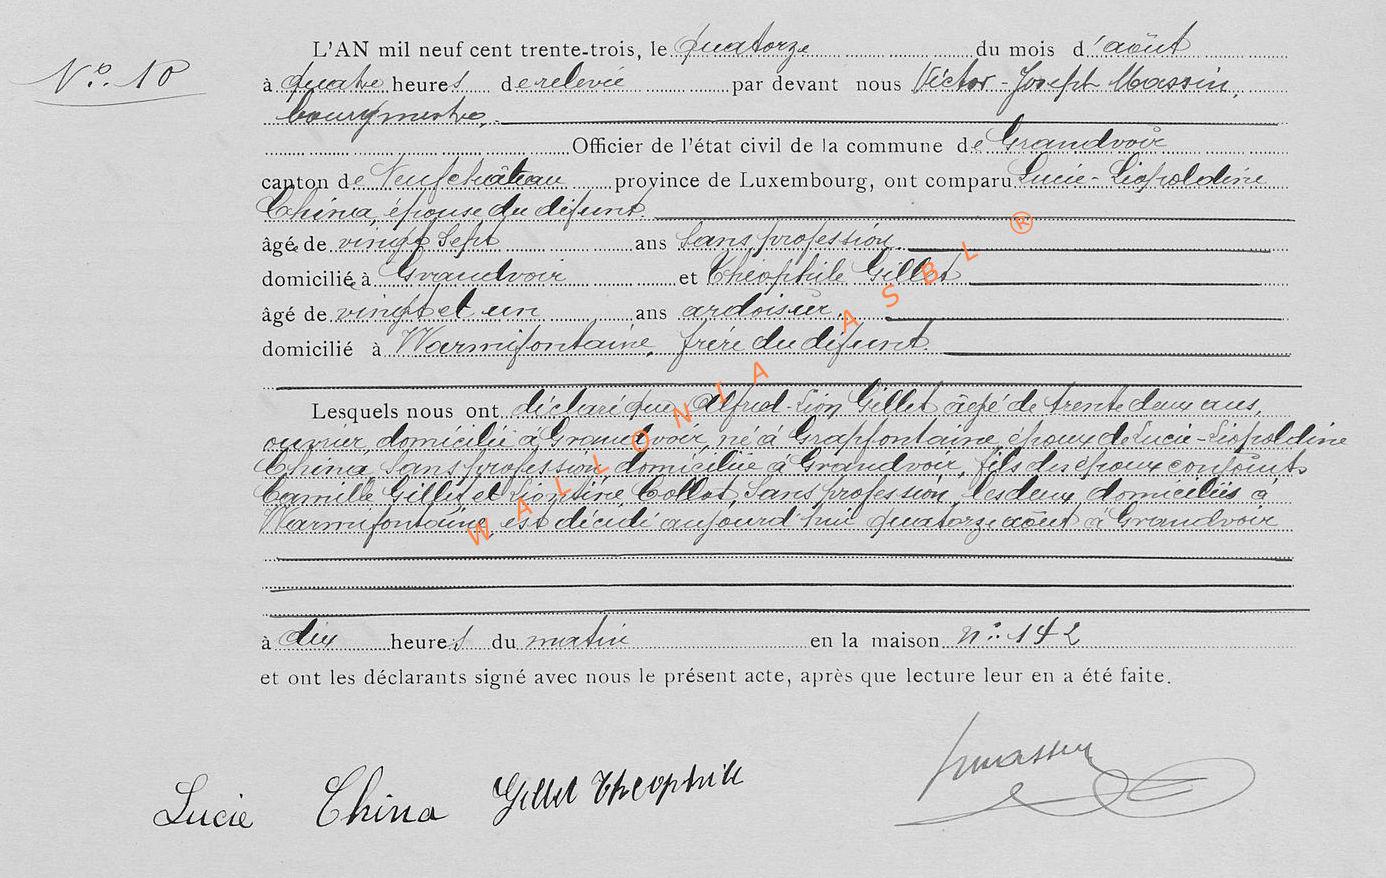 N° 10
L'AN mil neuf cent trente-trois, le quatorze du mois d'août
à quatre heures de relevée par devant nous Victor-Joseph Massin,
bourgmestre,
Officier de l'état civil de la commune de Grandvoir
canton de Neufchâteau province de Luxembourg, ont comparu Lucie-Léopoldine
China, épouse du défunt
âgée de vingt sept ans sans profession,
domiciliée à Grandvoir et Théophile Gillet
âgé de vingt et un ans ardoisier,
domicilié à Warmifontaine, frère du défunt.
Lesquels nous ont déclaré que Alfred-Léon Gillet âgé de trente deux ans,
ouvrier, domicilié à Grandvoir, né à Grapfontaine, époux de Lucie-Léopoldine
China, sans profession domiciliée à Grandvoir, fils des époux conjoints
Camille Gillet et Léontine Collot, sans profession, les deux domiciliés à
Warmifontaine est décédé aujourd'hui quatorze août à Grandvoir
à dix heures du matin en la maison n° 142
et ont les déclarants signé avec nous le présent acte, après que lecture leur en a été faite.
Lucie China Gillet Théophile Jmassin
WALLONIA ASBL ®